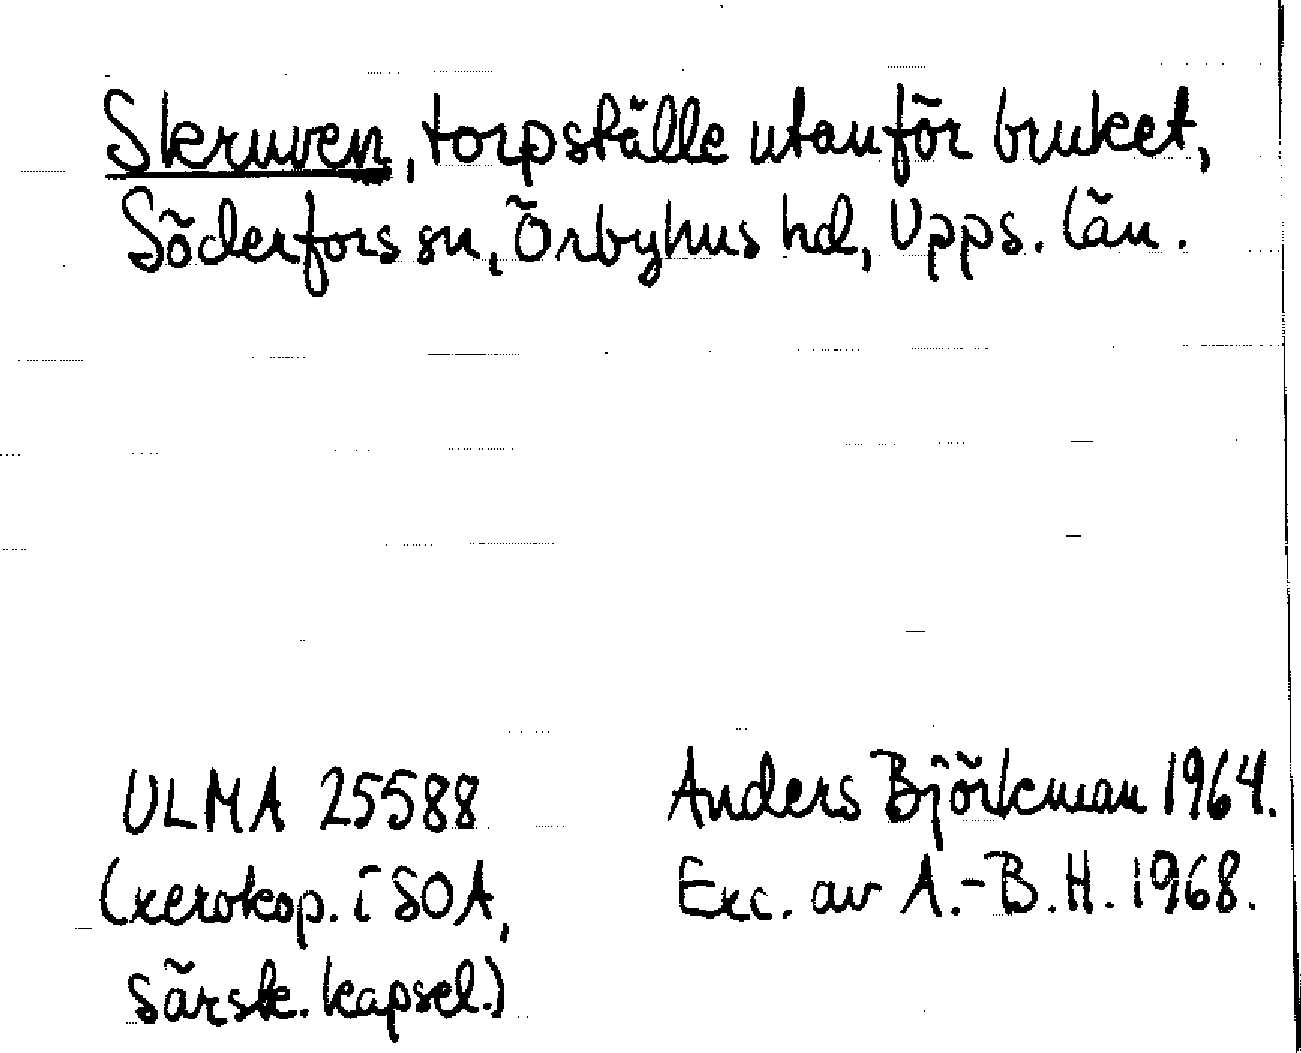 Skruven, torpställe utanför bruket,
Söderfors sn, Örbyhus hd, Upps. län.
ULMA 25588
(xerokop. i SOA,
särsk. kapsel.)
Anders Björkman 1964.
Exc. av A.-B.H. 1968.